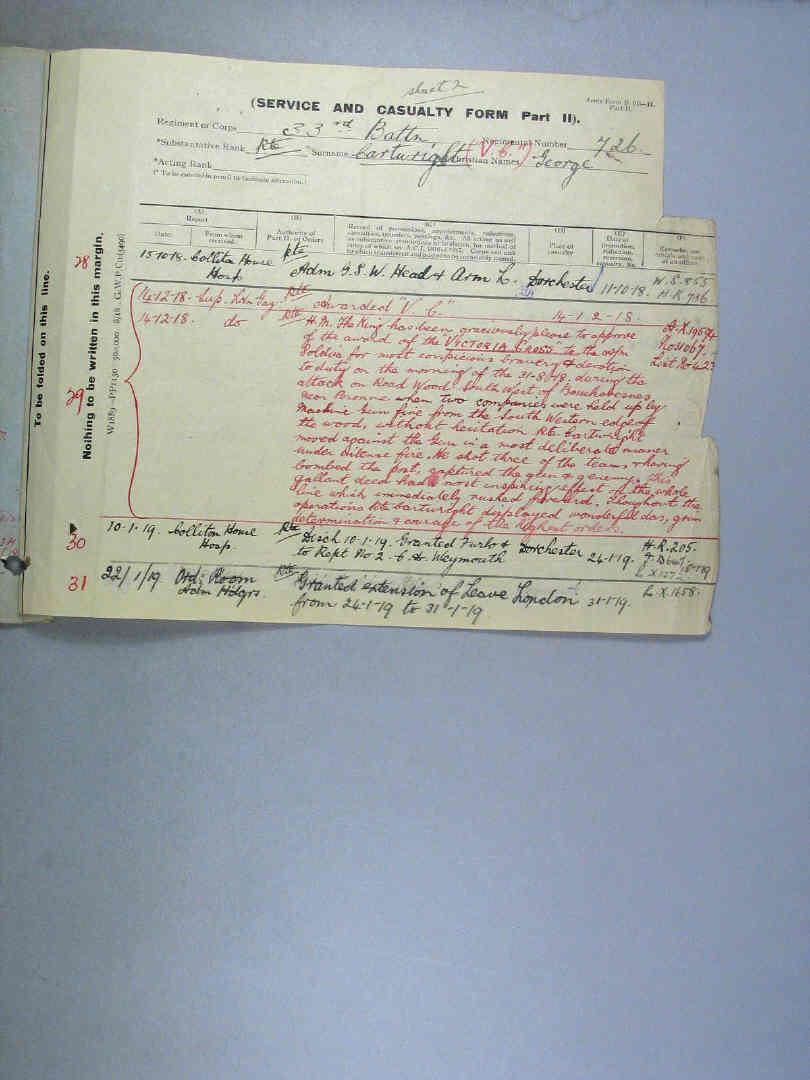 sheet 2
Army Form B. 103—II.
Part II.
(SERVICE AND CASUALTY FORM Part II).
Regiment or Corps 33rd Battn. Regimental Number 726
*Substantive Rank Pte Surname Cartwright ("V.C.") Christian Names George
*Acting Rank
(* To be entered in pencil to facilitate alteration.)
(A) Report
Date. From whom received.
(B) Authority of Part II. or Orders
(C)
(D) Place of casualty
(E) Date of promotion, reduction, reversion, casualty, &c.
(F)
28
15.10.18. Colliton House Hosp. Pte Adm G.S.W. Head & Arm L. Dorchester 11.10.18. W.S. 855
H.R. 786
14-12-18. Sup. Ldn Gaz. Pte Awarded "V.C." 14-12-18. A.X. 19594
29
14-12-18. do Pte H.M. The King has been graciously please to approve
of the award of the VICTORIA CROSS to the a/m
Soldier for most conspicious bravery & devotion List No 423
to duty on the morning of the 31-8-18. during the
attack on Road Wood South West of Bouchavesnes
near Peronne when two companies were held up by
Machine Gun fire from the South Western edge of
the wood, without hesitation Pte. Cartwright
moved against the Gun in a most deliberate manner
under intense fire. He shot three of the team & having
bombed the post, captured the gun & 9 enemy. This
gallant deed had a most inspiring effect on the whole
line which immediately rushed forward. Throughout the
operations Pte Cartwright displayed wonderful das, grim
determination & courage of the highest orders.
30
10-1-19. Colliton House Hosp. Pte Disch 10-1-19. Granted Furlo & Dorchester 24-1-19. H.R. 205.
to Rept No 2 C.D. Weymouth
31
22/1/19 Ord: Room Adm Hdqrs. Pte Granted extension of Leave London 31-1-19. L.X. 1658.
from 24-1-19 to 31-1-19
To be folded on this line.
Nothing to be written in this margin.